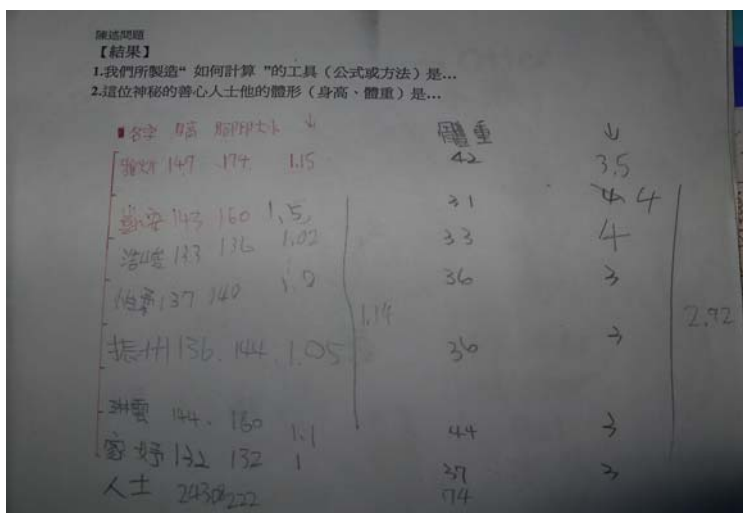 陳述問題
【結果】
1.我們所製造“ 如何計算 ”的工具（公式或方法）是…
2.這位神秘的善心人士他的體形（身高、體重）是…
名字 身高 腳印大小 ↓ 體重 ↓
147 174 1.15 42 3.5
143 160 1.5 31 4
浩 133 136 1.02 33 4
伯 137 140 1.0 36 3
1.14 2.92
振州 136. 144. 1.05 36 3
琳雲 144. 160 1.1 44 3
家妤 132 132 1 37 3
人士 222 74